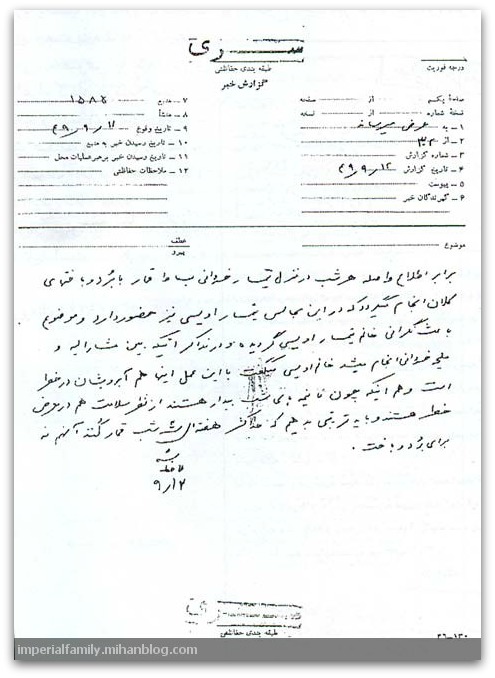 سری
طبقه بندی حفاظتی
گزارش خبر
درجه فوریت
صفحهٔ یکم از صفحه
نسخهٔ شماره از نسخه
۱ – به عرض میرساند
۲ – از ۳۰۲
۳ – شماره گزارش
۴ – تاریخ گزارش ۴۹/۹/۱۲
۵ – پیوست
۶ – گیرندگان خبر
۷ – منبع ۱۵۸۲
۸ – منشأ
۹ – تاریخ وقوع ۴۹/۹/۷
۱۰ – تاریخ رسیدن خبر به منبع
۱۱ – تاریخ رسیدن خبر برهبر عملیات محل
۱۲ – ملاحظات حفاظتی
موضوع
عطف
پیرو
برابر اطلاع واصله هر شب در منزل تیمسار خسروانی بساط قمار با برد و باختهای
کلان انجام میگیرد که در این مجالس تیمسار اویسی نیز حضور دارد و موضوع
باعث نگرانی خانم تیمسار اویسی گردیده و در مذاکراتیکه بین مشارالیه و
خسروانی انجام میشد خانم اویسی میگفت با این عمل اینها هم آبرویشان در خطر
است و هم اینکه چون تا نیمه شب بیدار هستند از نظر سلامت هم در معرض
خطر هستند و باید ترتیبی بدهیم که حداکثر هفته‌ای شب قمار کنند آنهم نه
برای برد و باخت .
۹/۱۲
سری
طبقه بندی حفاظتی
۳۶–۱۳۰
imperialfamily.mihanblog.com